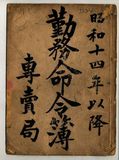 昭和十四年以降
勤務命令簿
專賣局